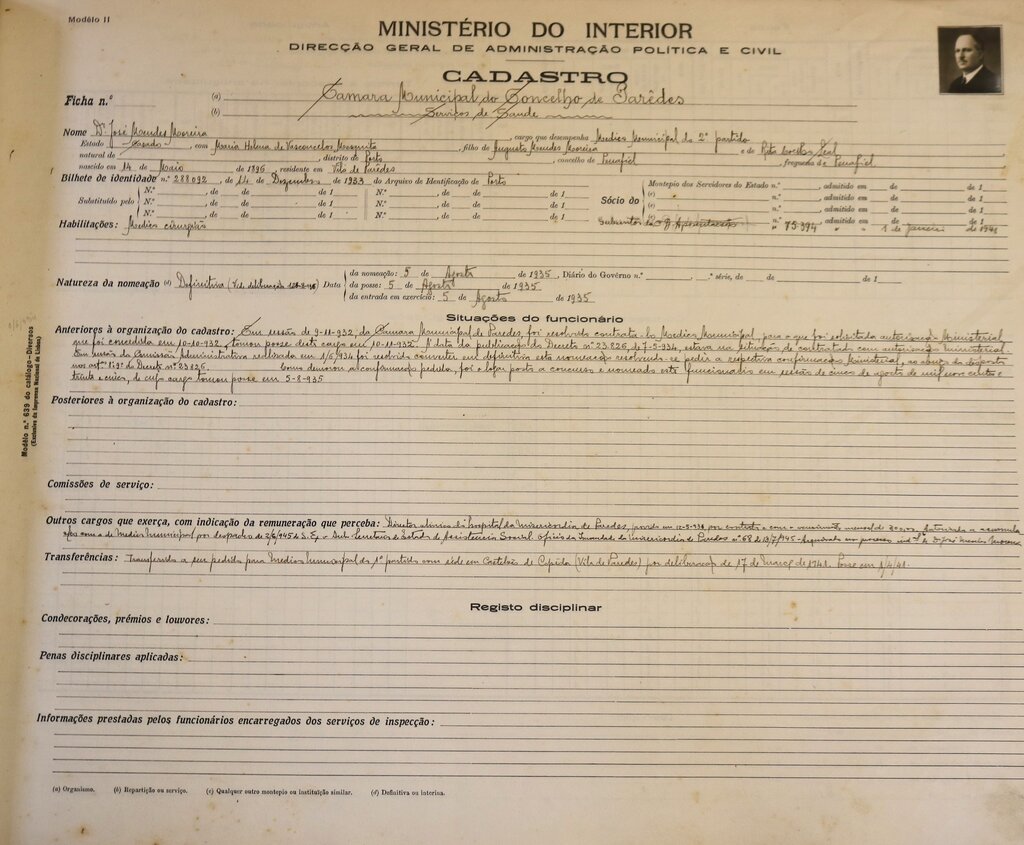 Modêlo 11
MINISTÉRIO DO INTERIOR
DIRECÇÃO GERAL DE ADMINISTRAÇÃO POLÍTICA E CIVIL
CADASTRO
Ficha n.º (a) Camara Municipal do Concelho de Parêdes
(b) Serviços de Saude
Nome Dr. José Mendes Moreira, cargo que desempenha Medico Municipal do 2º partido
Estado Casado, com Maria Helena de Vasconcelos Mesquita, filho de Augusto Mendes Moreira e de Rita Leal
natural de, distrito do Porto, concelho de Penafiel, freguesia de Penafiel
nascido em 14 de Maio de 1896, residente em Vila de Parêdes
Bilhete de identidade n.º 288092, de 14 de Dezembro de 1933, do Arquivo de Identificação de Porto
Substituído pelo
N.º, de de de 1 N.º, de de de 1
N.º, de de de 1 N.º, de de de 1
N.º, de de de 1 N.º, de de de 1
Sócio do
Montepio dos Servidores do Estado n.º, admitido em de de 1
(c) n.º, admitido em de de 1
(c) n.º, admitido em de de 1
Subscritor da C. G. Aposentações n.º 75394 " " 1 de Janeiro de 1941
Habilitações: Medico cirurgião
Natureza da nomeação (d) Definitiva (Vid. deliberação) Data
da nomeação: 5 de Agosto de 1935, Diário do Govêrno n.º, .ª série, de de de 1
da posse: 5 de Agosto de 1935
da entrada em exercício: 5 de Agosto de 1935
Situações do funcionário
Anteriores à organização do cadastro: Em sessão de 9-11-932, da Camara Municipal de Paredes, foi resolvido contrata-lo Medico Municipal, para o que foi solicitada autorização Ministerial
que foi concedida em 10-10-932, tomou posse deste cargo em 10-11-932. Á data da publicação do Decreto nº 23.826, de 7-5-934, estava na situação de contratado com autorização ministerial.
Em sessão da Comissão Administrativa realisada em 1/6/934 foi resolvido converter em definitiva esta nomeação resolvendo-se pedir a respectiva confirmação Ministerial, ao abrigo do disposto
nos artº do Decreto nº 23826. Como demorou a confirmação pedida, foi o lugar posto a concurso e nomeado este funcionario em sessão de cinco de agosto de mil nove centos e
trinta e cinco, de cujo cargo tomou posse em 5-8-935.
Posteriores à organização do cadastro:
Comissões de serviço:
Outros cargos que exerça, com indicação da remuneração que perceba: Director clinico do hospital da Misericordia de Paredes, por contrato e com o vencimento mensal de
com o de Medico Municipal por despacho de 2/6/945 de S. Exª o Sub-Secretario de Estado da Assistencia Social, oficio da Misericordia de Paredes nº 68 de 13/7/945
Transferências: Transferido a seu pedido para Medico Municipal do 1º partido com séde em Castelões de Cepêda (Vila de Paredes) por deliberação de 17 de março de 1941. Posse em 1/4/41.
Registo disciplinar
Condecorações, prémios e louvores:
Penas disciplinares aplicadas:
Informações prestadas pelos funcionários encarregados dos serviços de inspecção:
(a) Organismo. (b) Repartição ou serviço. (c) Qualquer outro montepio ou instituição similar. (d) Definitiva ou interina.
Modêlo n.º 639 do catálogo—Diversos
(Exclusivo da Imprensa Nacional de Lisboa)